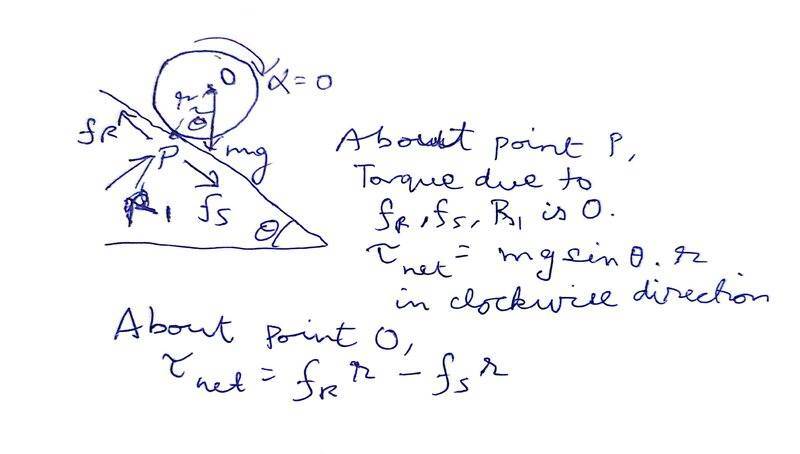 O
α = 0
r
θ
f_R
P
mg
R_1
f_S
θ
About point P,
Torque due to
f_R, f_S, R_1 is 0.
τ_net = mg sin θ . r
in clockwise direction
About point O,
τ_net = f_R r - f_S r